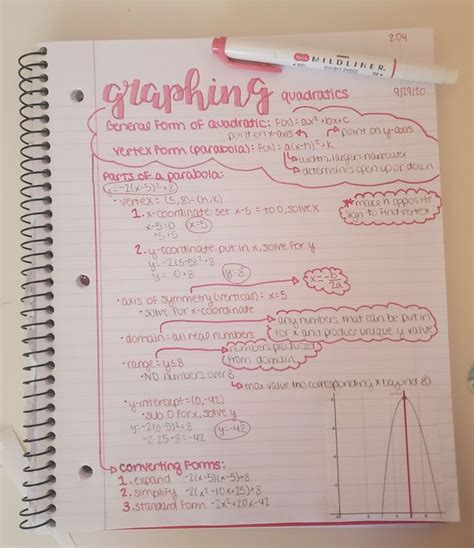 204
MILDLINER
graphing quadratics 9/29/20
General form of quadratic: f(x)=ax²+bx+c
point on x-axis point on y-axis
vertex form (parabola): f(x)=a(x-h)²+k
width, larger=narrower
determines open up or down
Parts of a parabola:
y=-2(x-5)²+8
• vertex = (5,8)=(h,k)
* make h opposite sign to find vertex
1. x-coordinate: set x-5 = to 0, solve x
x-5=0 x=5
+5 +5
2. y-coordinate: put in x, solve for y
y=-2(5-5)²+8
y= 0+8 y=8
x=-b/2a
• axis of symmetry (vertical): x=5
• solve for x-coordinate
any numbers that can be put in for x and produce unique y value
• domain: all real numbers
numbers produced from domain
• range=y≤8
• NO numbers over 8
max value (no corresponding x beyond 8)
• y-intercept=(0,-42)
• sub 0 for x, solve y
y=-2(0-5)²+8
-2·25+8=-42 y=-42
converting forms:
1. expand -2(x-5)(x-5)+8
2. simplify -2(x²-10x+25)+8
3. standard form -2x²+20x-42